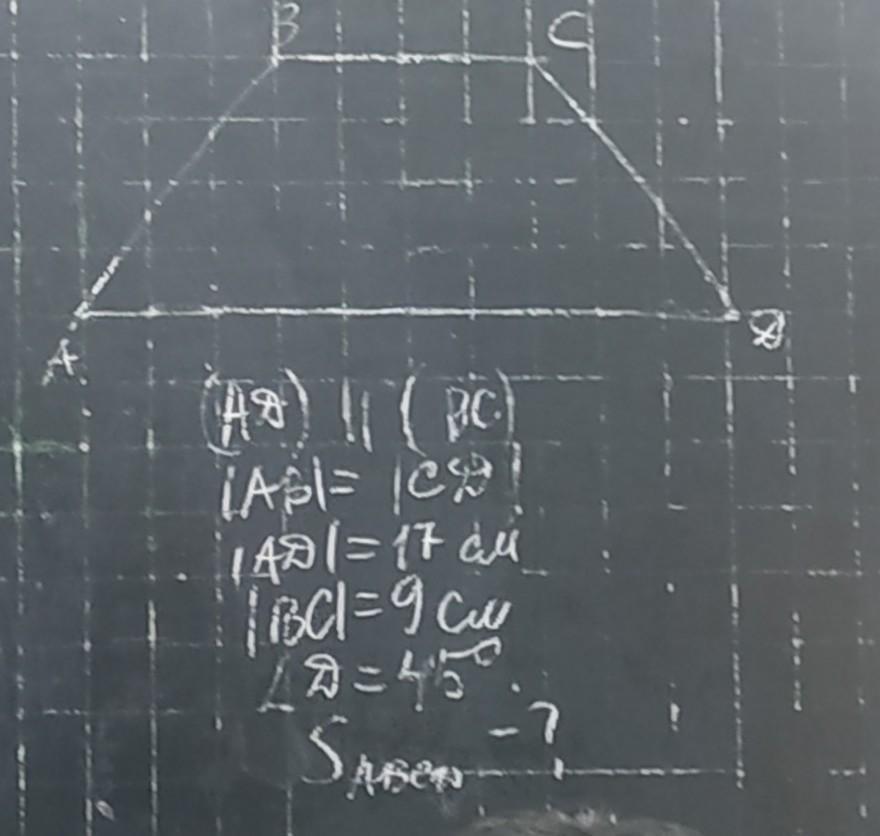 B C
A D
(AD) || (BC)
|AB| = |CD|
|AD| = 17 см
|BC| = 9 см
∠D = 45°
S ABCD - ?